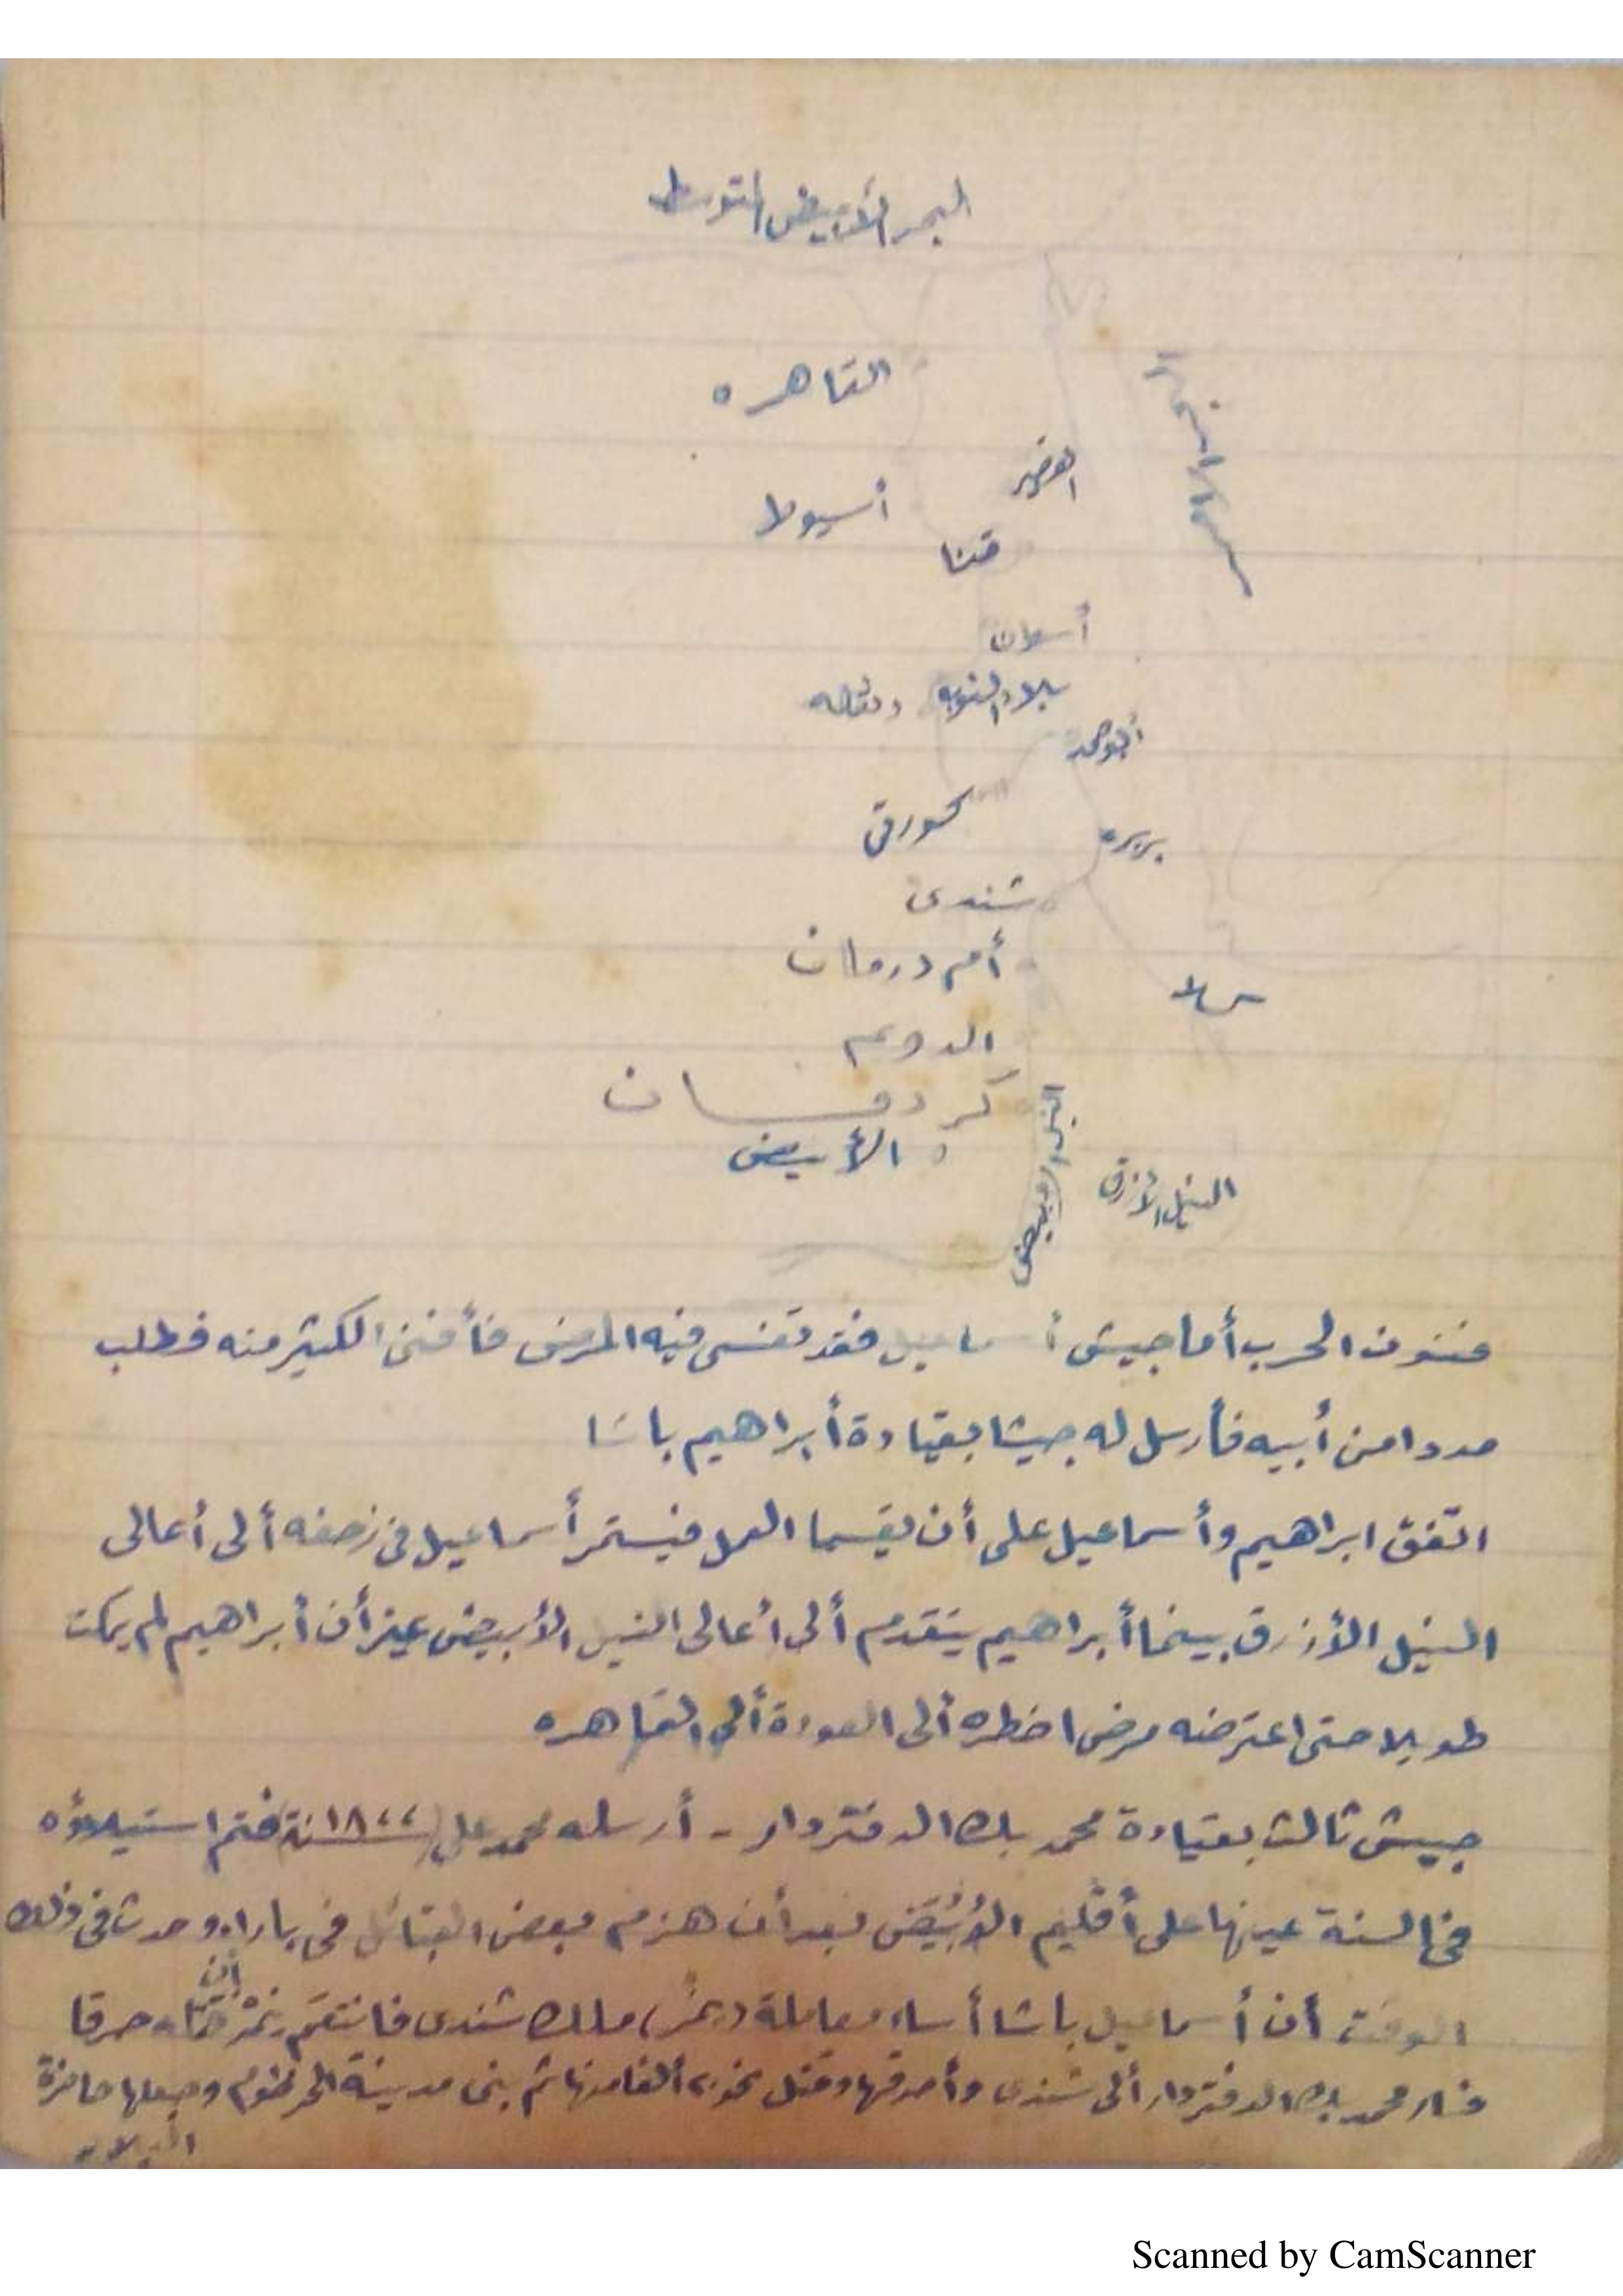 البحر الأبيض المتوسط
القاهره
القصير
أسيوط
قنا
أسوان
بلاد النوبه دنقله
أبو حمد
كورتى
بربره
شندى
أم درمان
الدويم
كردفان
الأبيض
النيل الأبيض
النيل الأزرق
فنون الحرب أما جيش أسماعيل فقد تفشى فيه المرض فأفنى الكثير منه فطلب
مددا من أبيه فأرسل له جيشا بقيادة أبراهيم باشا
اتفق ابراهيم وأسماعيل على أن يقسما العمل فيستمر أسماعيل فى زحفه ألى أعالى
النيل الأزرق بينما أبراهيم يتقدم ألى أعالى النيل الأبيض غير أن أبراهيم لم يمكث
طويلا حتى اعترضه مرض اضطره ألى العودة ألى القاهره
جيش ثالث بقيادة محمد بك الدفتردار - أرسله محمد على سنة ١٨٢٢ فتم استيلاؤه
فى السنة عينها على أقليم الأبيض بعد أن هزم بعض القبائل فى بارا، وحدث فى ذلك
الوقت أن أسماعيل باشا أساء معاملة (نمر) ملك شندى فانتقم نمر بأن قتله حرقا
فسار محمد بك الدفتردار ألى شندى وأحرقها وقتل نحو ٢٠ ألفا منها ثم بنى مدينة الخرطوم وجعلها حاضرة
البلاد
Scanned by CamScanner